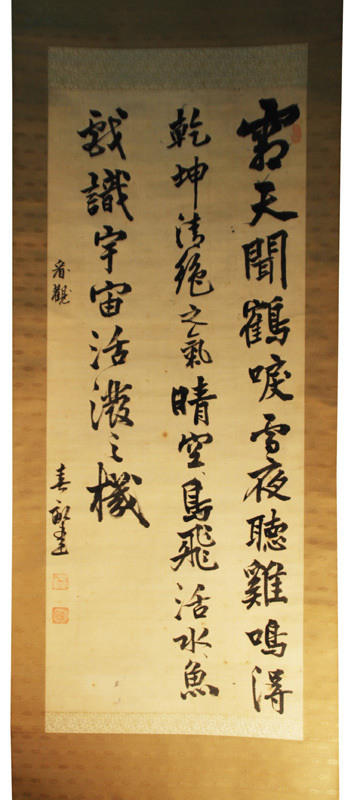 霜天聞鶴唳雪夜聽雞鳴得
乾坤清絶之氣晴空鳥飛活水魚
戲識宇宙活潑之機
看觀
春